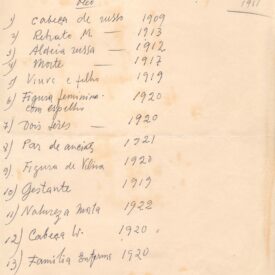 1) cabeça de russo 1909
2) Retrato M — 1913
3) Aldeia russa — 1912
4) Morte — 1917
5) Viuva e filho 1919
6) Figura feminina - 1920
com espelho
7) Dois seres — 1920
8) Par de anciãos 1921
9) Figura de Vilna 1920
10) Gestante 1919
11) Natureza Morta 1922
12) Cabeça W. 1920
13) Familia Enferma 1920